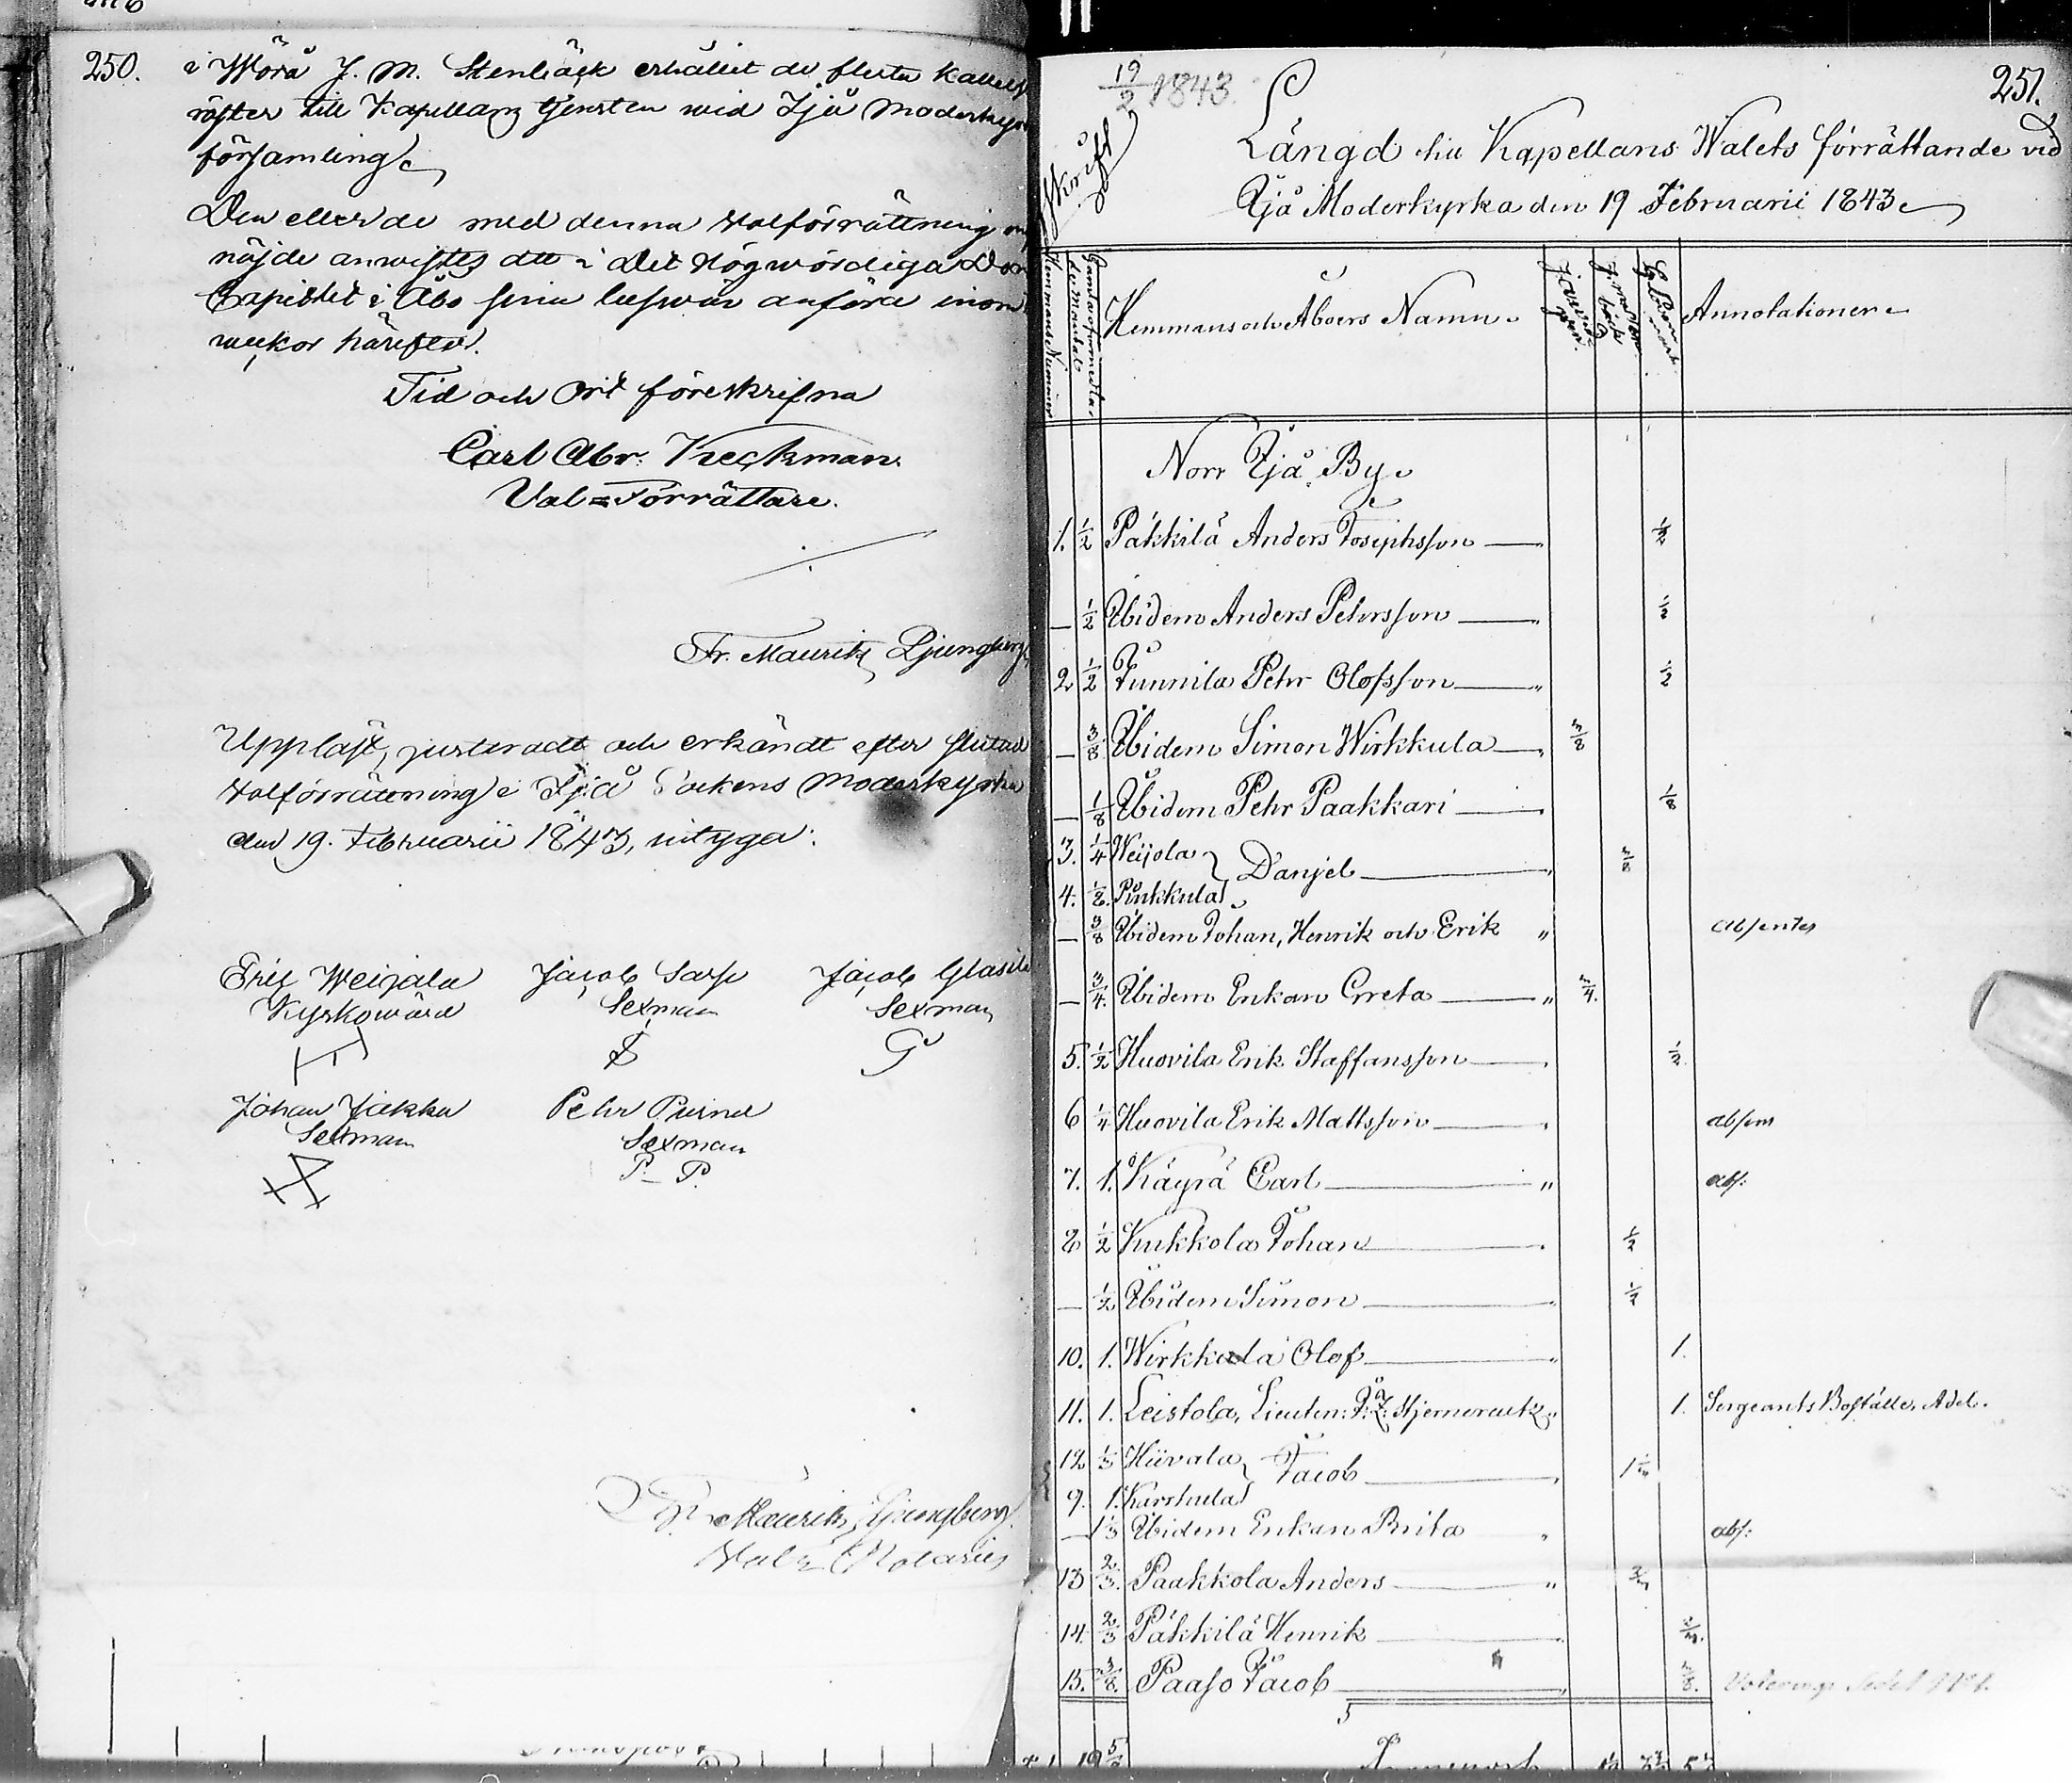 250.
i Wörå J. M. Stenbäck erhållit de flesta kallels
röster till Kapellans tjensten wid Ijå Moderkyr
församling
Den eller de med denna Valförrättning
nöjde anwistes att i Det Högwördiga Dom
Capitlet i Åbo sina beswär anföra inom
weckor härefter.
Tid och Ort föreskrifna
Carl Abr. Keckman.
Val=Förrättare.
Fr. Mauritz Ljungberg
Uppläst, justeradt och erkändt efter slutad
Valförrättning i Ijå Sockens Moderkyrka
den 19. Februarii 1843, intyga:
Eric Weijola Jacob Sarfi Jacob Glasila
Kyrkowärd Sexman Sexman
S G
Johan Jakku Pehr Purnu
Sexman Sexman
P. P.
Fr. Mauritz Ljungberg.
Val Notarius
19/2 1843.
251.
Afskrift
Längd till Kapellans Walets förrättande vid
Ijå Moderkyrka den 19 Februarii 1843
Hemmans Nummer
Gamla oförmedlade Mantal
Hemmans och Åboers Namn
Annotationer
Norr Ijå By
1. 1/2 Päkkilä Anders Josephsson 1/2
— 1/2 Ibidem Anders Pehrsson 1/2
2 1/2 Junnila Pehr Olofsson 1/2
— 3/8 Ibidem Simon Wirkkula 3/8
— 1/8 Ibidem Pehr Paakkari 1/8
3. 1/4 Weijola
Danjel 3/8
4. 1/8. Pirkkula
— 3/8 Ibidem Johan, Henrik och Erik " absentes
— 3/4. Ibidem Enkan Greta " 3/4.
5. 1/2 Huovila Erik Staffansson 1/2.
6 1/4 Huovila Erik Mattsson absens
7. 1. Käyrä Carl " abs:
8 1/2 Kukkola Johan 1/2
— 1/2 Ibidem Simon 1/2
10. 1. Wirkkula Olof 1.
11. 1. Leistola, Lieuten: Stjerncreutz 1. Sergeants Boställe, Adel.
12 1/3 Hiivala
Jacob
9. 1. Karskula
— 1/3 Ibidem Enkan Brita abs:
13 2/3. Paakkola Anders " 2/3
14. 2/3 Päkkilä Henrik 2/3.
15. 3/8. Paaso Jacob 3/8. Voterings Sedel N:o 1.
5